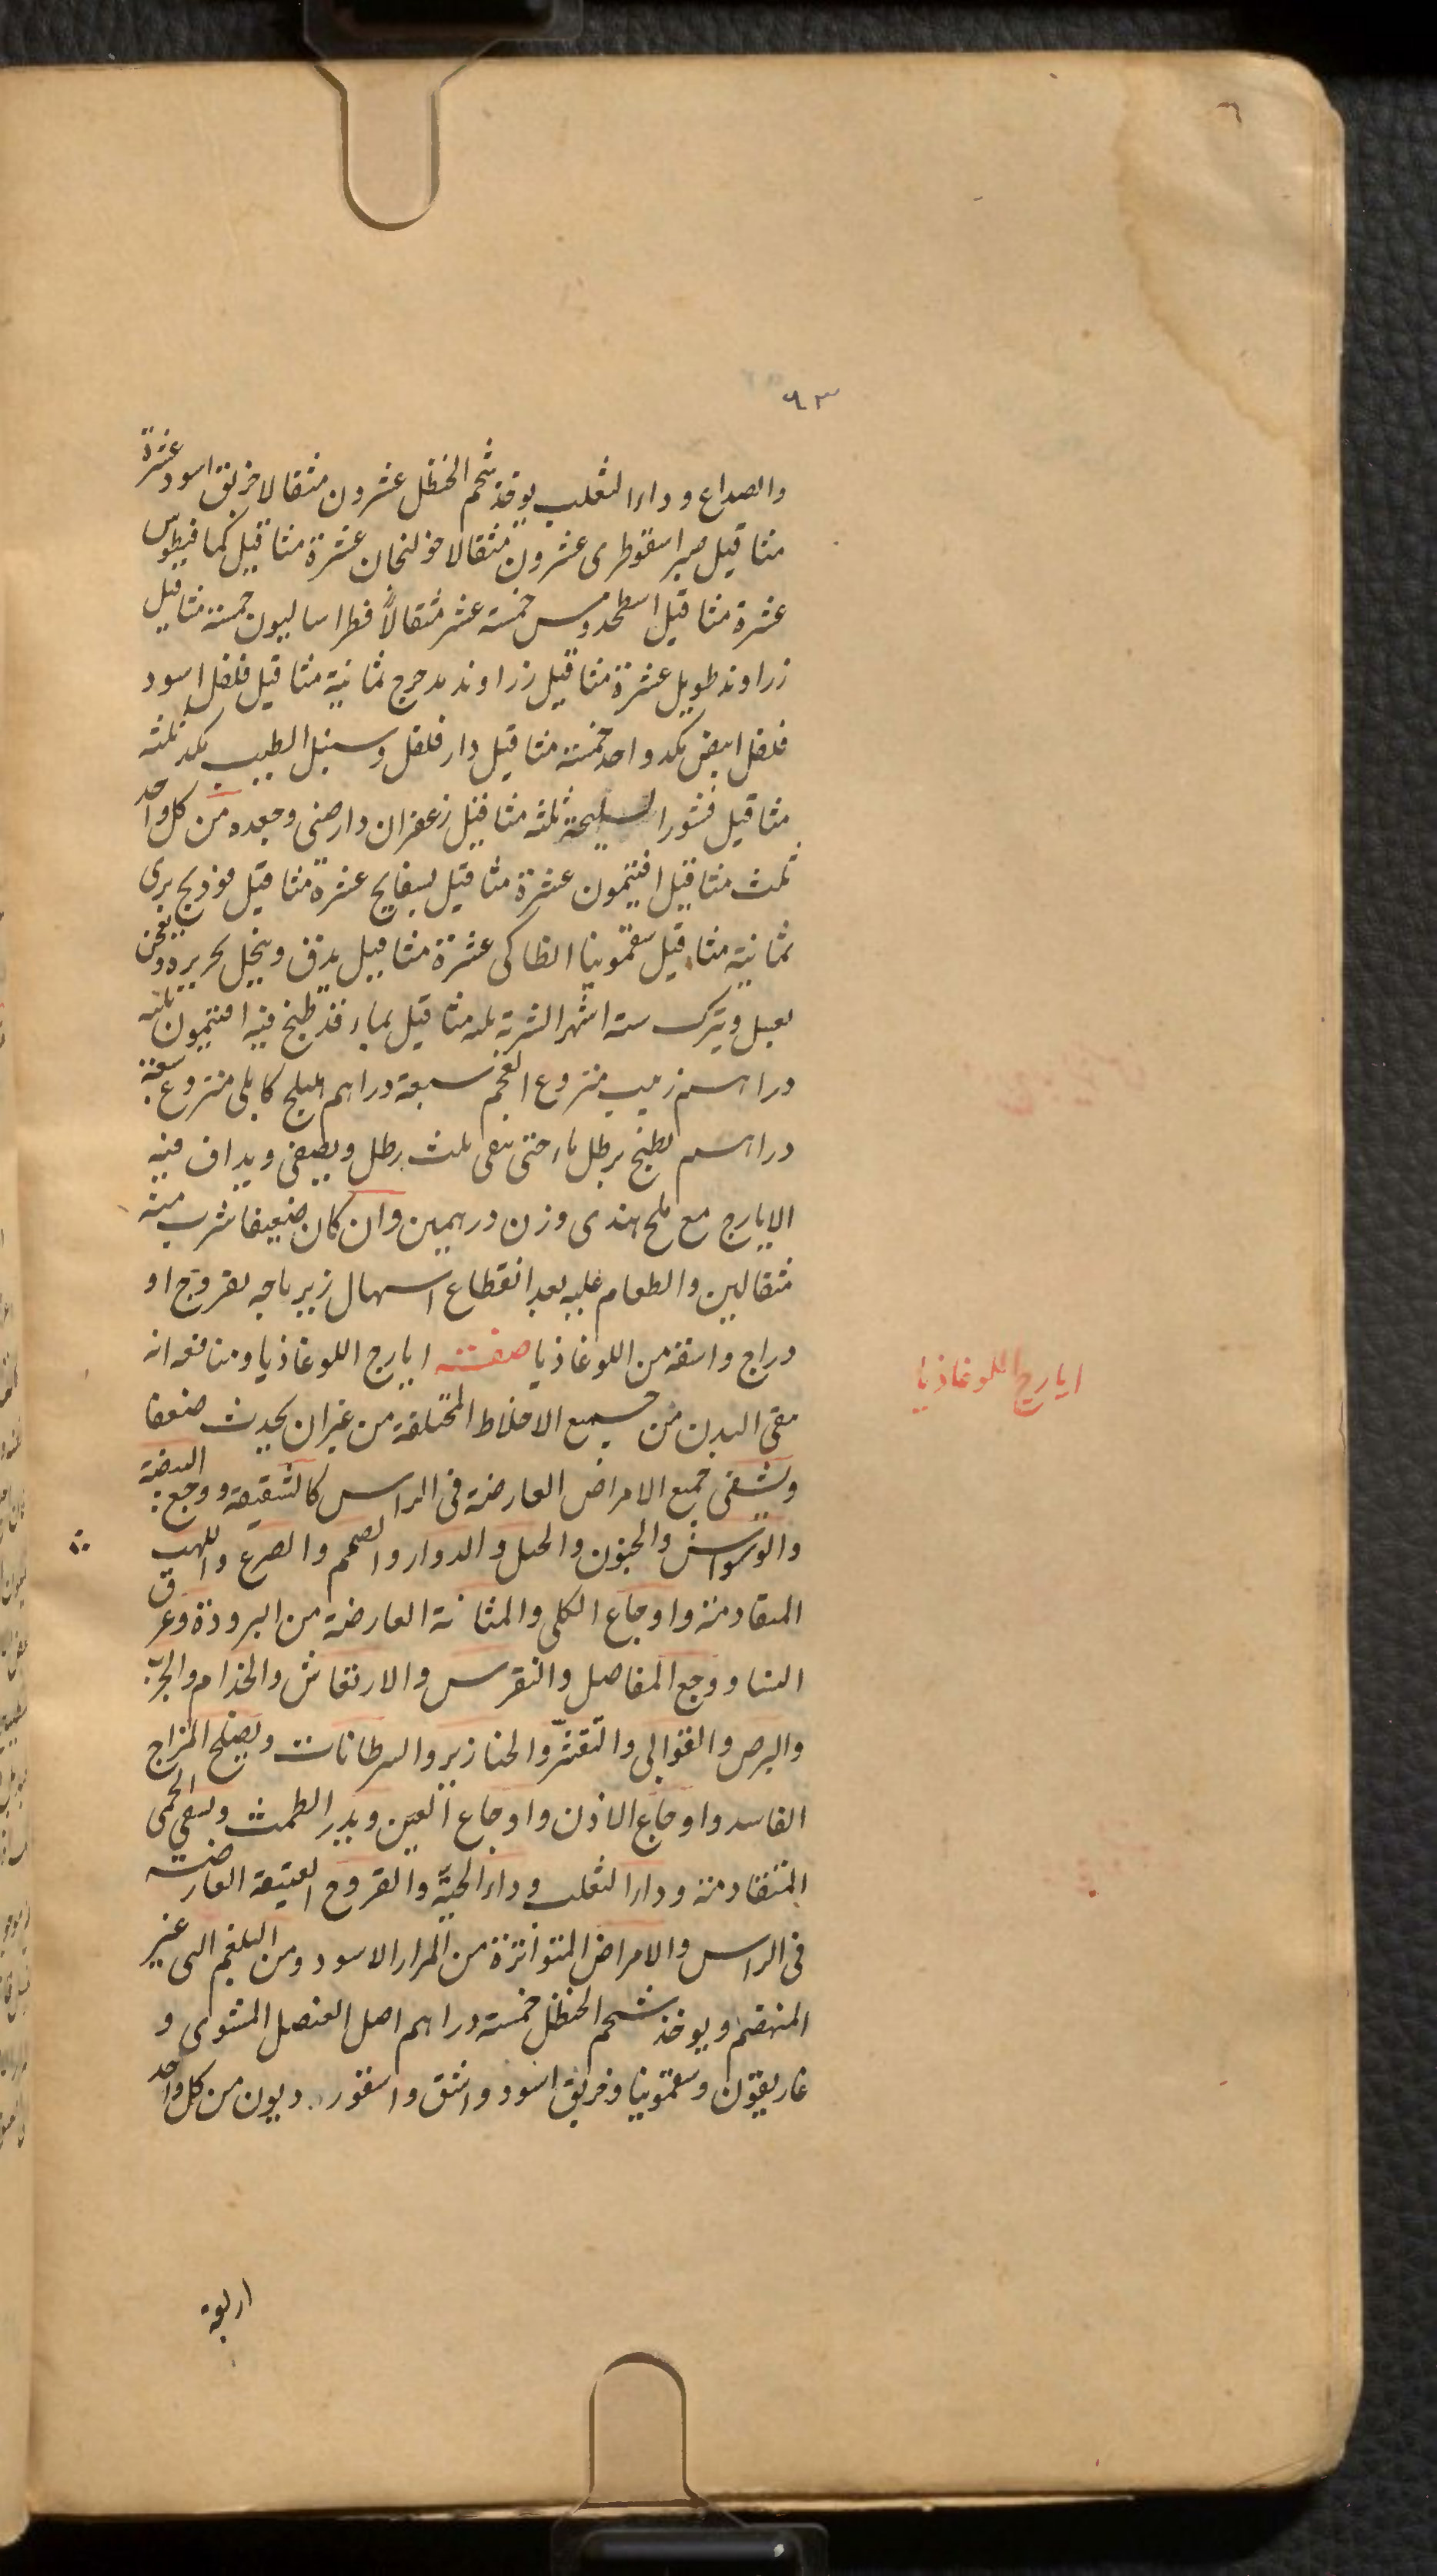 ٩٣
والصداع وداء الثعلب يوخذ شحم الحنظل عشرون مثقالا خربق اسود عشرة
مثاقيل صبر اسقوطرى عشرون مثقالا خولنجان عشرة مثاقيل كمافيطوس
عشرة مثاقيل اسطخدوس خمسة عشر مثقالاً فطراساليون خمسة مثاقيل
زراوند طويل عشرة مثاقيل زراوند مدحرج ثمانية مثاقيل فلفل اسود
فلفل ابيض بكد واحد خمسة مثاقيل دار فلفل وسنبل الطيب بكد ثلثه
مثاقيل قشور السليخة ثلثه مثاقيل زعفران دارصنى وجعده من كل واحد
ثلث مثاقيل افتيمون عشرة مثاقيل بسفايج عشرة مثاقيل فوذيج برى
ثمانية مثاقيل سقمونيا انطاكى عشرة مثاقيل يدق وينخل بحريره ويعجن
بعسل ويترك ستة اشهر الشربة ثلثه مثاقيل بماء قد طبخ فيه افتيمون ثلثه
دراهم زبيب منزوع العجم سبعة دراهم هليلج كابلى منزوع سبعة
دراهم يطبخ برطل ماء حتى يبقى ثلث رطل ويصفى ويداف فيه
الايارج مع ملح هندى وزن درهمين وان كان ضعيفا شرب منه
مثقالين والطعام عليه بعد انقطاع اسهال زيرباجه بفروج او
دراج واسقه من اللوغاذيا صفته ايارج اللوغاذيا ومنافعه انه
ينقى البدن من جميع الاخلاط المختلفة من غير ان يحدث ضعفا
ويشفى جميع الامراض العارضة فى الراس كالشقيقة ووجع البيضة
والوسواس والجنون والخبل والدوار والصمم والصرع واللهيب
المتقادمة واوجاع الكلى والمثانة العارضة من البرودة وعرق
النسا ووجع المفاصل والنقرس والارتعاش والجذام والجرب
والبرص والقوابى والتقشّر والخنازير والسرطانات ويصلح المزاج
الفاسد واوجاع الاذن واوجاع العين ويدر الطمث ويشفى الحمى
المتقادمة وداء الثعلب وداء الحيّة والقروح العتيقة العارضة
فى الراس والامراض المتواترة من المرار الاسود ومن البلغم التى غير
المنهضم ويوخذ شحم الحنظل خمسة دراهم اصل العنصل المشوى و
غاريقون وسقمونيا وخربق اسود واشق واسقورديون من كل واحد
اربعة
ايارج اللوغاذيا